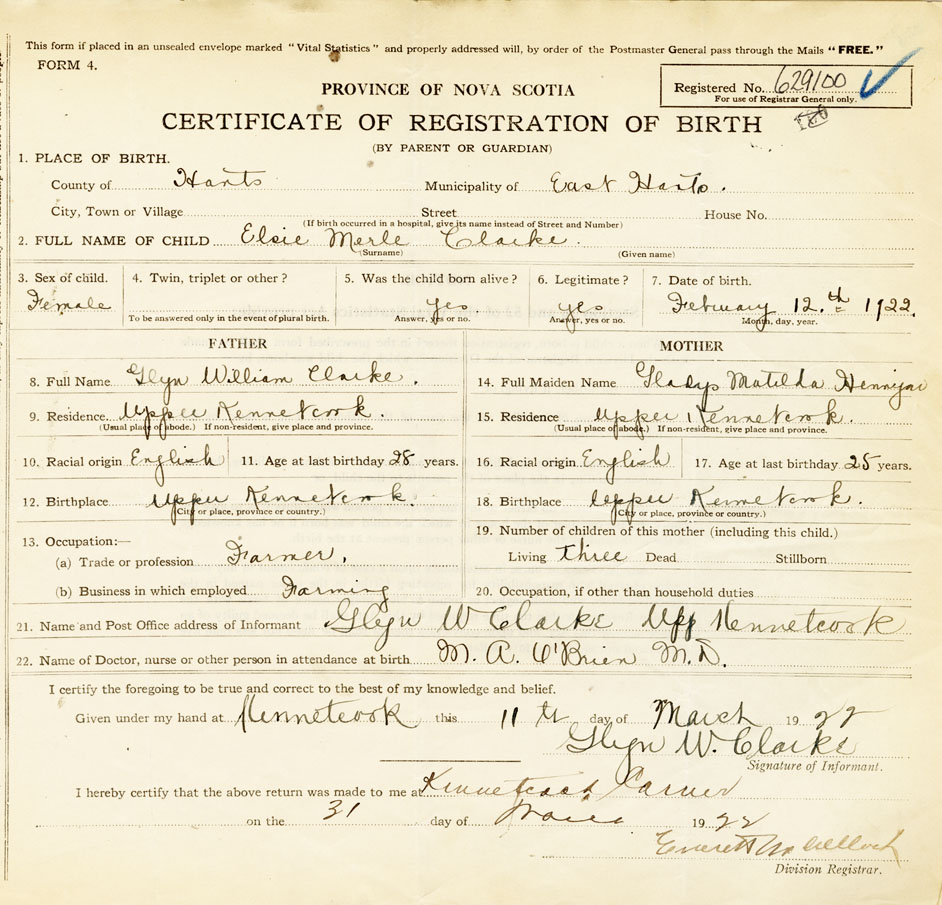 This form if placed in an unsealed envelope marked "Vital Statistics" and properly addressed will, by order of the Postmaster General pass through the Mails "FREE."
FORM 4.
PROVINCE OF NOVA SCOTIA
Registered No. 629100
For use of Registrar General only.
CERTIFICATE OF REGISTRATION OF BIRTH
(BY PARENT OR GUARDIAN)
1. PLACE OF BIRTH.
County of Hants Municipality of East Hants.
City, Town or Village Street House No.
(If birth occurred in a hospital, give its name instead of Street and Number)
2. FULL NAME OF CHILD Elsie Merle Clarke.
(Surname) (Given name)
3. Sex of child. 4. Twin, triplet or other? 5. Was the child born alive? 6. Legitimate? 7. Date of birth.
Female yes. yes February 12.th 1922.
To be answered only in the event of plural birth. Answer, yes or no. Answer, yes or no. Month, day, year.
FATHER MOTHER
8. Full Name Glyn William Clarke. 14. Full Maiden Name Gladys Matilda Hennigar
9. Residence Upper Kennetcook. 15. Residence Upper Kennetcook.
(Usual place of abode.) If non-resident, give place and province. (Usual place of abode.) If non-resident, give place and province.
10. Racial origin English 11. Age at last birthday 28 years. 16. Racial origin English 17. Age at last birthday 25 years.
12. Birthplace Upper Kennetcook. 18. Birthplace Upper Kennetcook.
(City or place, province or country.) (City or place, province or country.)
13. Occupation:— 19. Number of children of this mother (including this child.)
(a) Trade or profession Farmer. Living three Dead Stillborn
(b) Business in which employed Farming 20. Occupation, if other than household duties
21. Name and Post Office address of Informant Glyn W Clarke Upp Kennetcook
22. Name of Doctor, nurse or other person in attendance at birth M. A. O'Brien M.D.
I certify the foregoing to be true and correct to the best of my knowledge and belief.
Given under my hand at Kennetcook this 11 th day of March 1922
Glyn W. Clarke
Signature of Informant.
I hereby certify that the above return was made to me at Kennetcook Corner
on the 31 day of March 1922
Everett
Division Registrar.